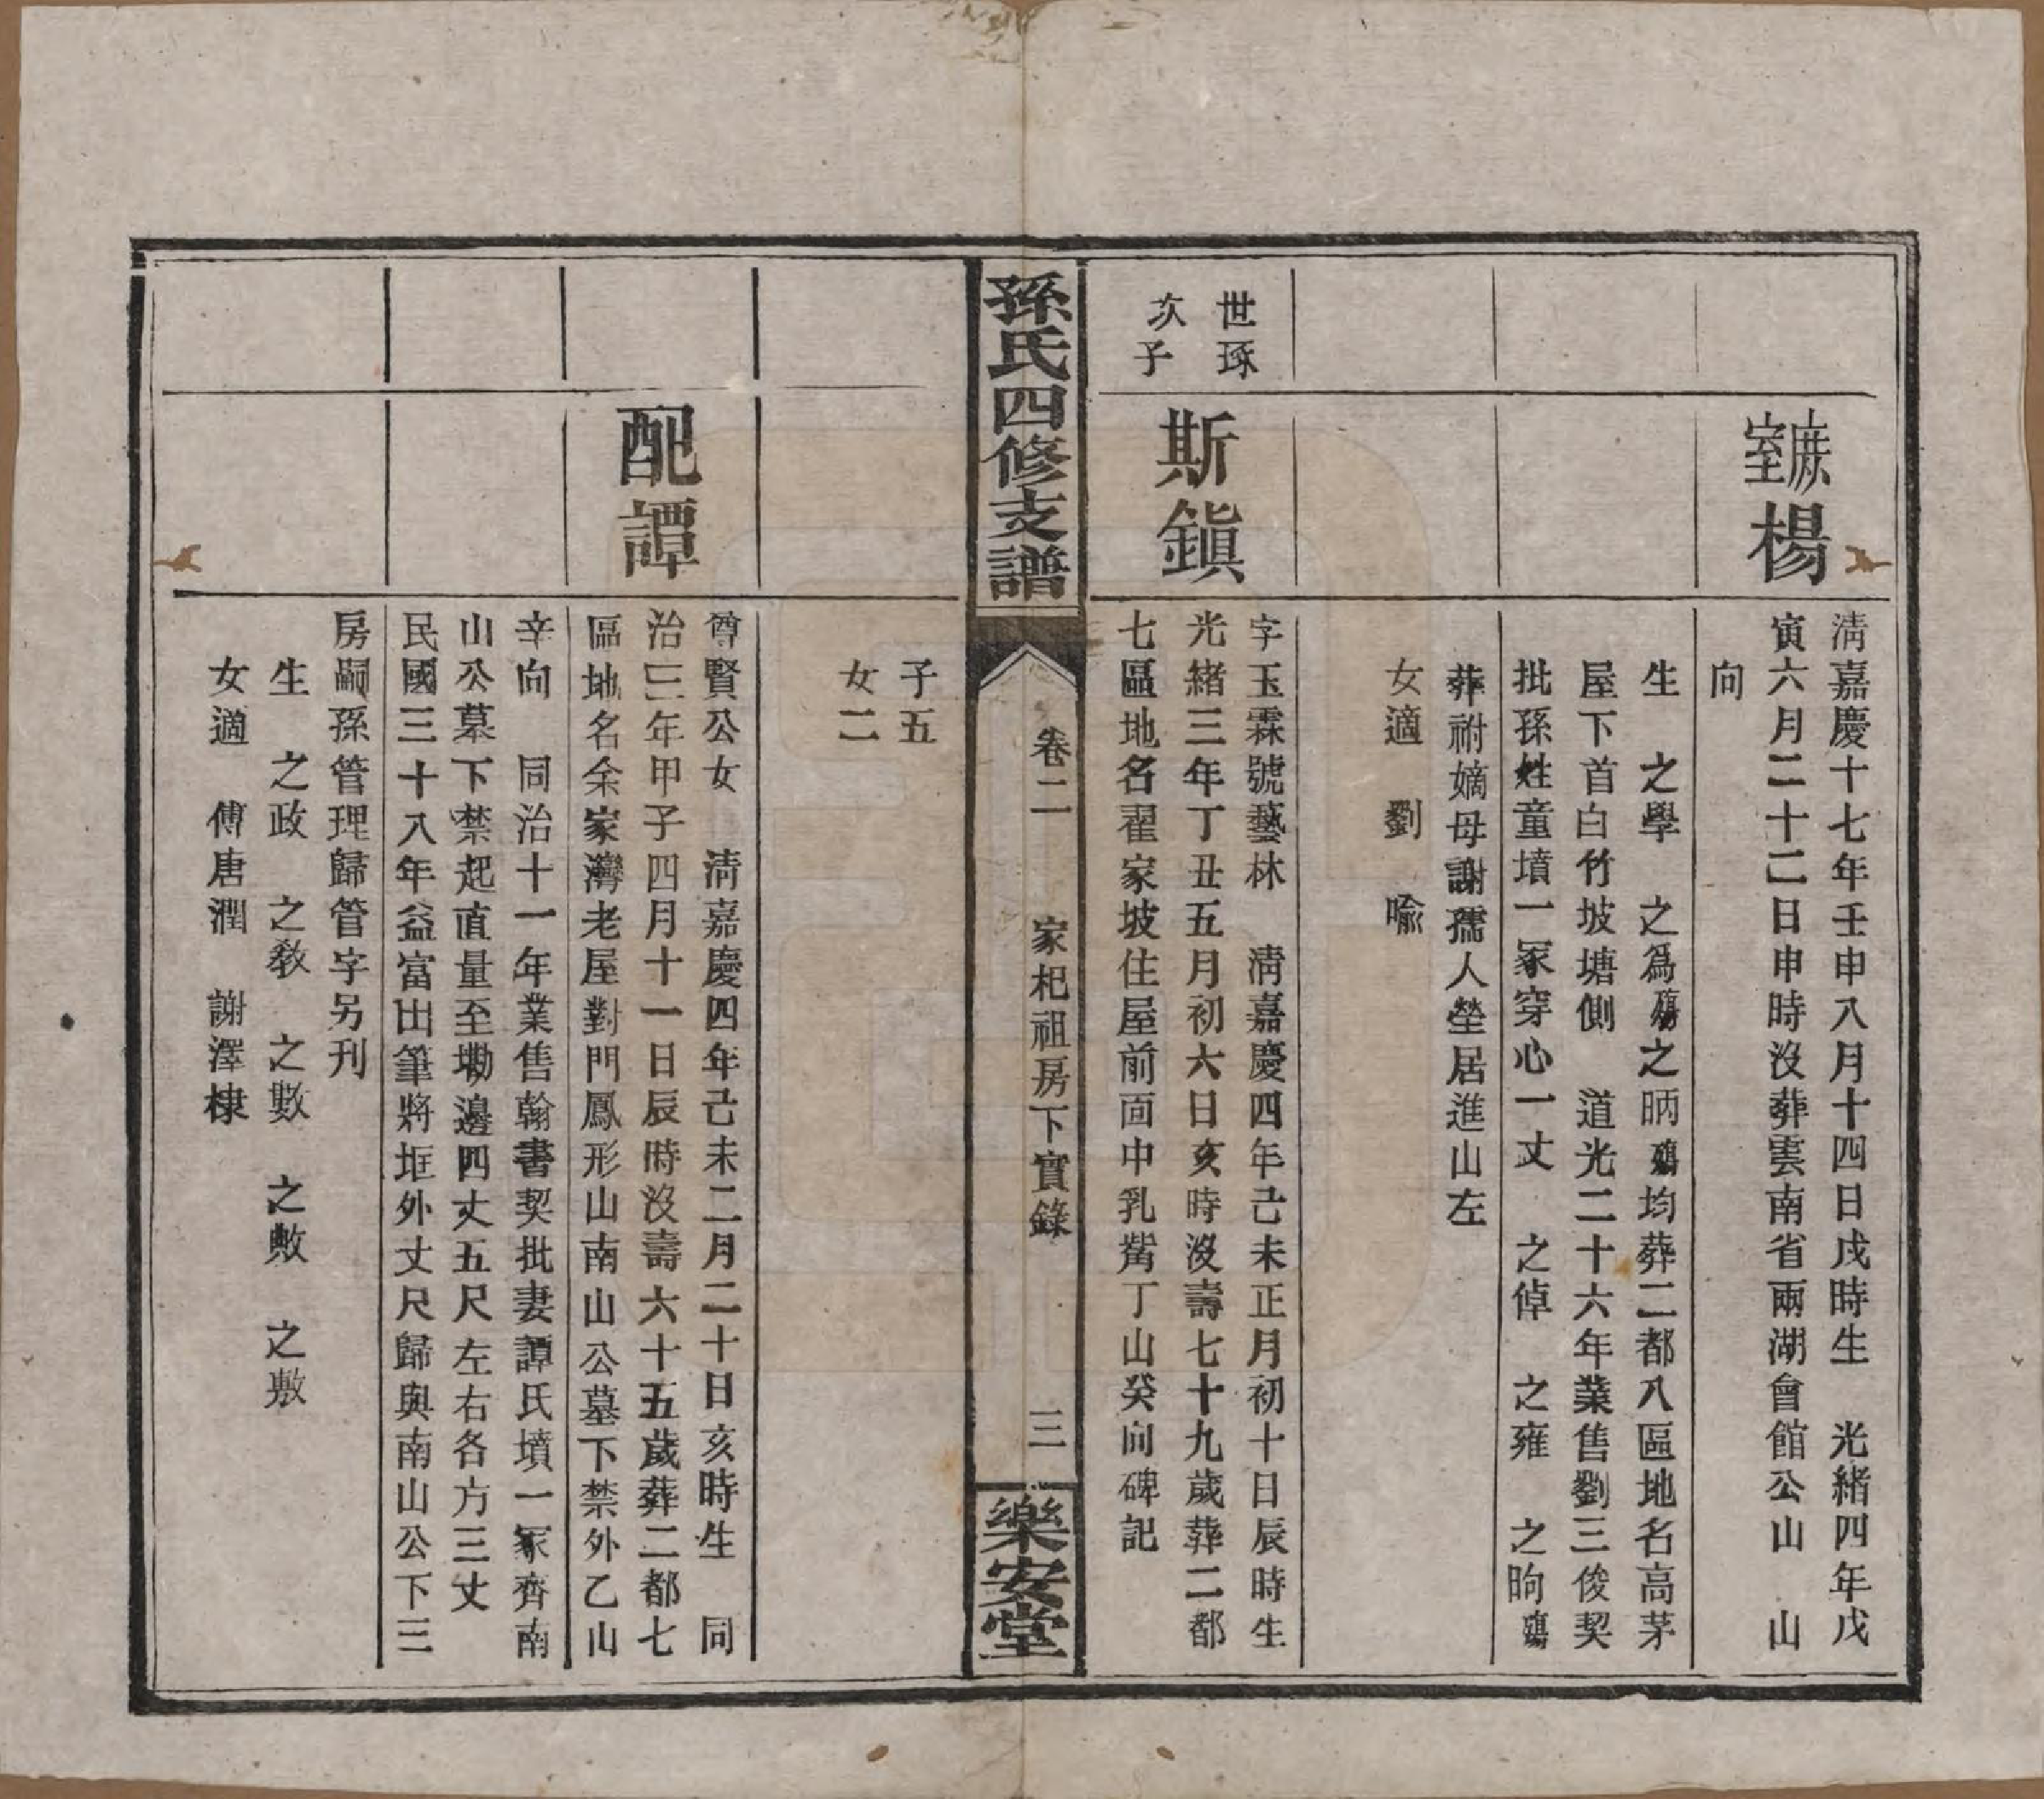 庶室楊
清嘉慶十七年壬申八月十四日戌時生　光緒四年戊
寅六月二十二日申時沒葬雲南省兩湖會館公山　山
向
生　之學　之爲殤之昞殤均葬二都八區地名高茅
屋下首白竹坡塘側　道光二十六年業售劉三俊契
批孫姓童墳一冢穿心一丈　之倬　之雍　之昫殤
葬祔嫡母謝孺人塋居進山左
女適　劉　喻
世琢
次子
斯鎭
字玉霖號藝林　清嘉慶四年己未正月初十日辰時生
光緒三年丁丑五月初六日亥時沒壽七十九歲葬二都
七區地名翟家坡住屋前面中乳觜丁山癸向碑記
孫氏四修支譜
卷二　家杞祖房下實錄　三
樂安堂
子五
女二
配譚
尊賢公女　清嘉慶四年己未二月二十日亥時生　同
治三年甲子四月十一日辰時沒壽六十五歲葬二都七
區地名余家灣老屋對門鳳形山南山公墓下禁外乙山
辛向　同治十一年業售翰書契批妻譚氏墳一冢齊南
山公墓下禁起直量至墈邊四丈五尺左右各方三丈
民國三十八年益富出筆將坵外丈尺歸與南山公下三
房嗣孫管理歸管字另刊
生　之政　之教　之數　之敟　之敷
女適　傅唐潤　謝澤棣